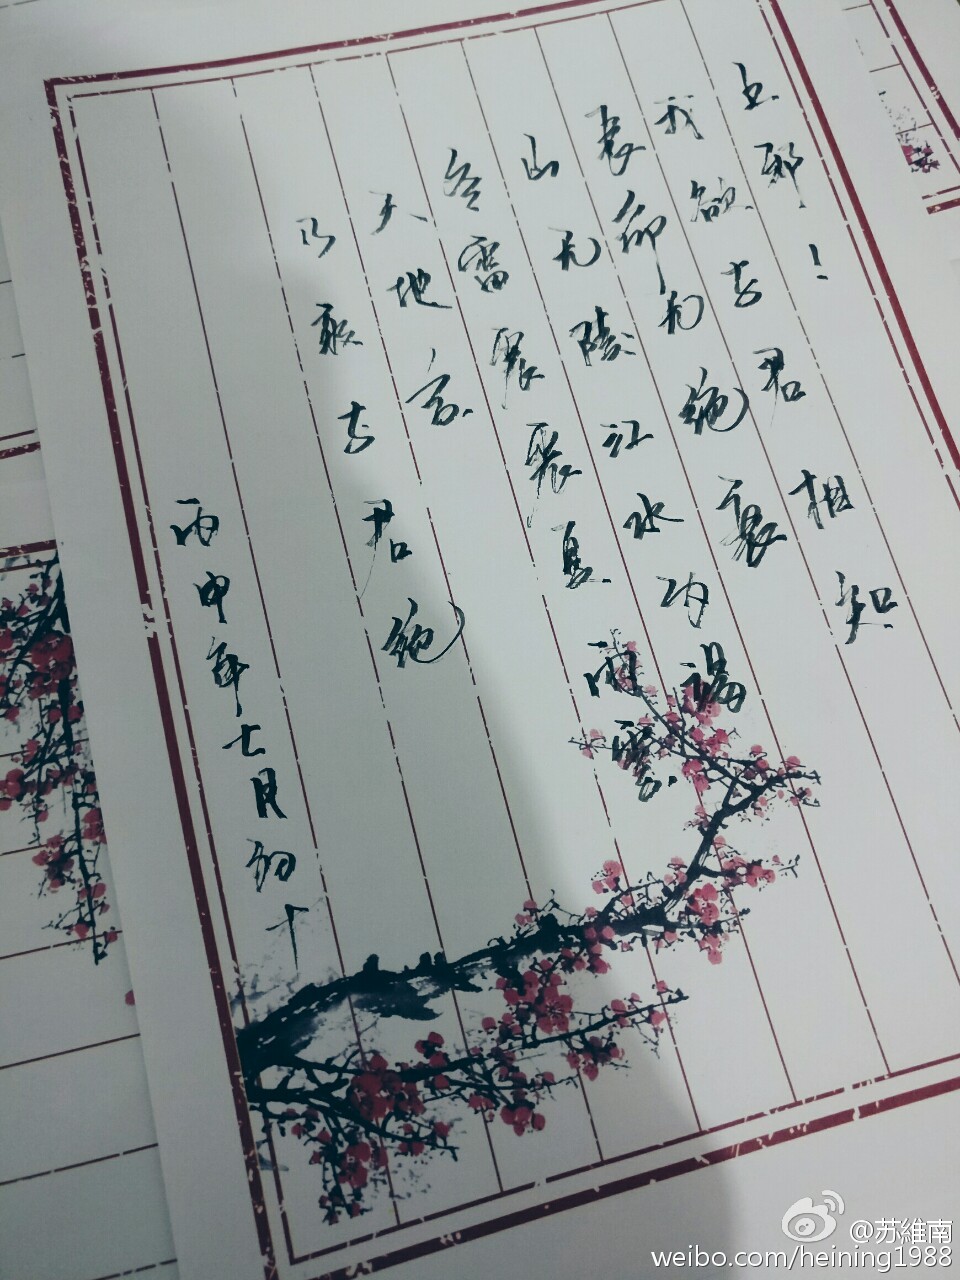 上邪！
我欲与君相知
長命无絶衰
山无陵江水为竭
冬雷震震夏雨雪
天地合
乃敢与君絶
丙申年七月初十
@苏維南
weibo.com/heining1988